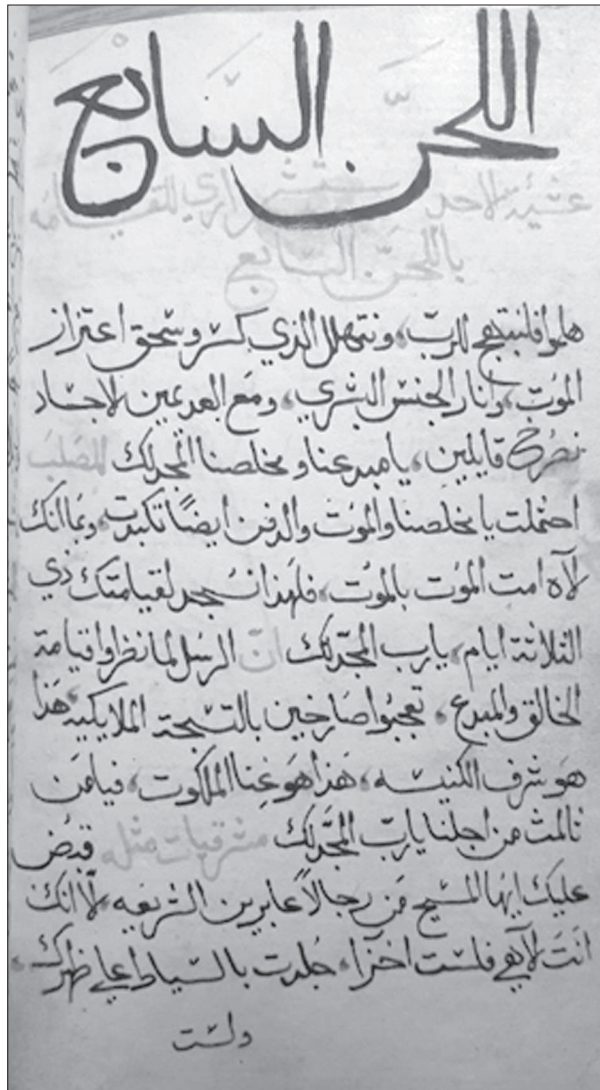 اللحن السابع
عشية الاحد ستشراري للقيامه
باللحن السابع
هلموا فلنبتهج للرب، ونتهلل الذي كسر وسحق اعتزاز
الموت، وانار الجنس البشري، ومع العديمين الاجساد
نصرخ قايلين، يا مبدعنا ومخلصنا المجد لك للصلب
احتملت يا مخلصنا والموت والدفن ايضًا تكبدت، وبما انك
لاه امت الموت بالموت، فلهذا نسجد لقيامتك ذي
الثلاثة ايام، يا رب المجد لك انّ الرسل لما نظروا قيامة
الخالق والمبدع، تعجبوا صارخين بالتسبحة الملايكيه هذا
هو شرف الكنيسه، هذا هو غنا الملكوت، فيا من
تالمت من اجلنا يا رب المجد لك مشرقيات مثله قبض
عليك ايها المسيح من رجالاً عابرين الشريعه لانك
انت لاهي فلست اخزا، جلدت بالسياط على ظهرك،
ولست